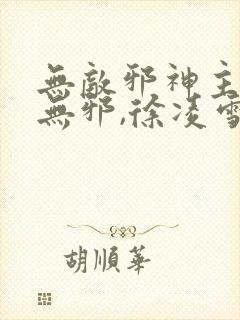 無敵邪神主
無邪,徐凌雪
胡順華